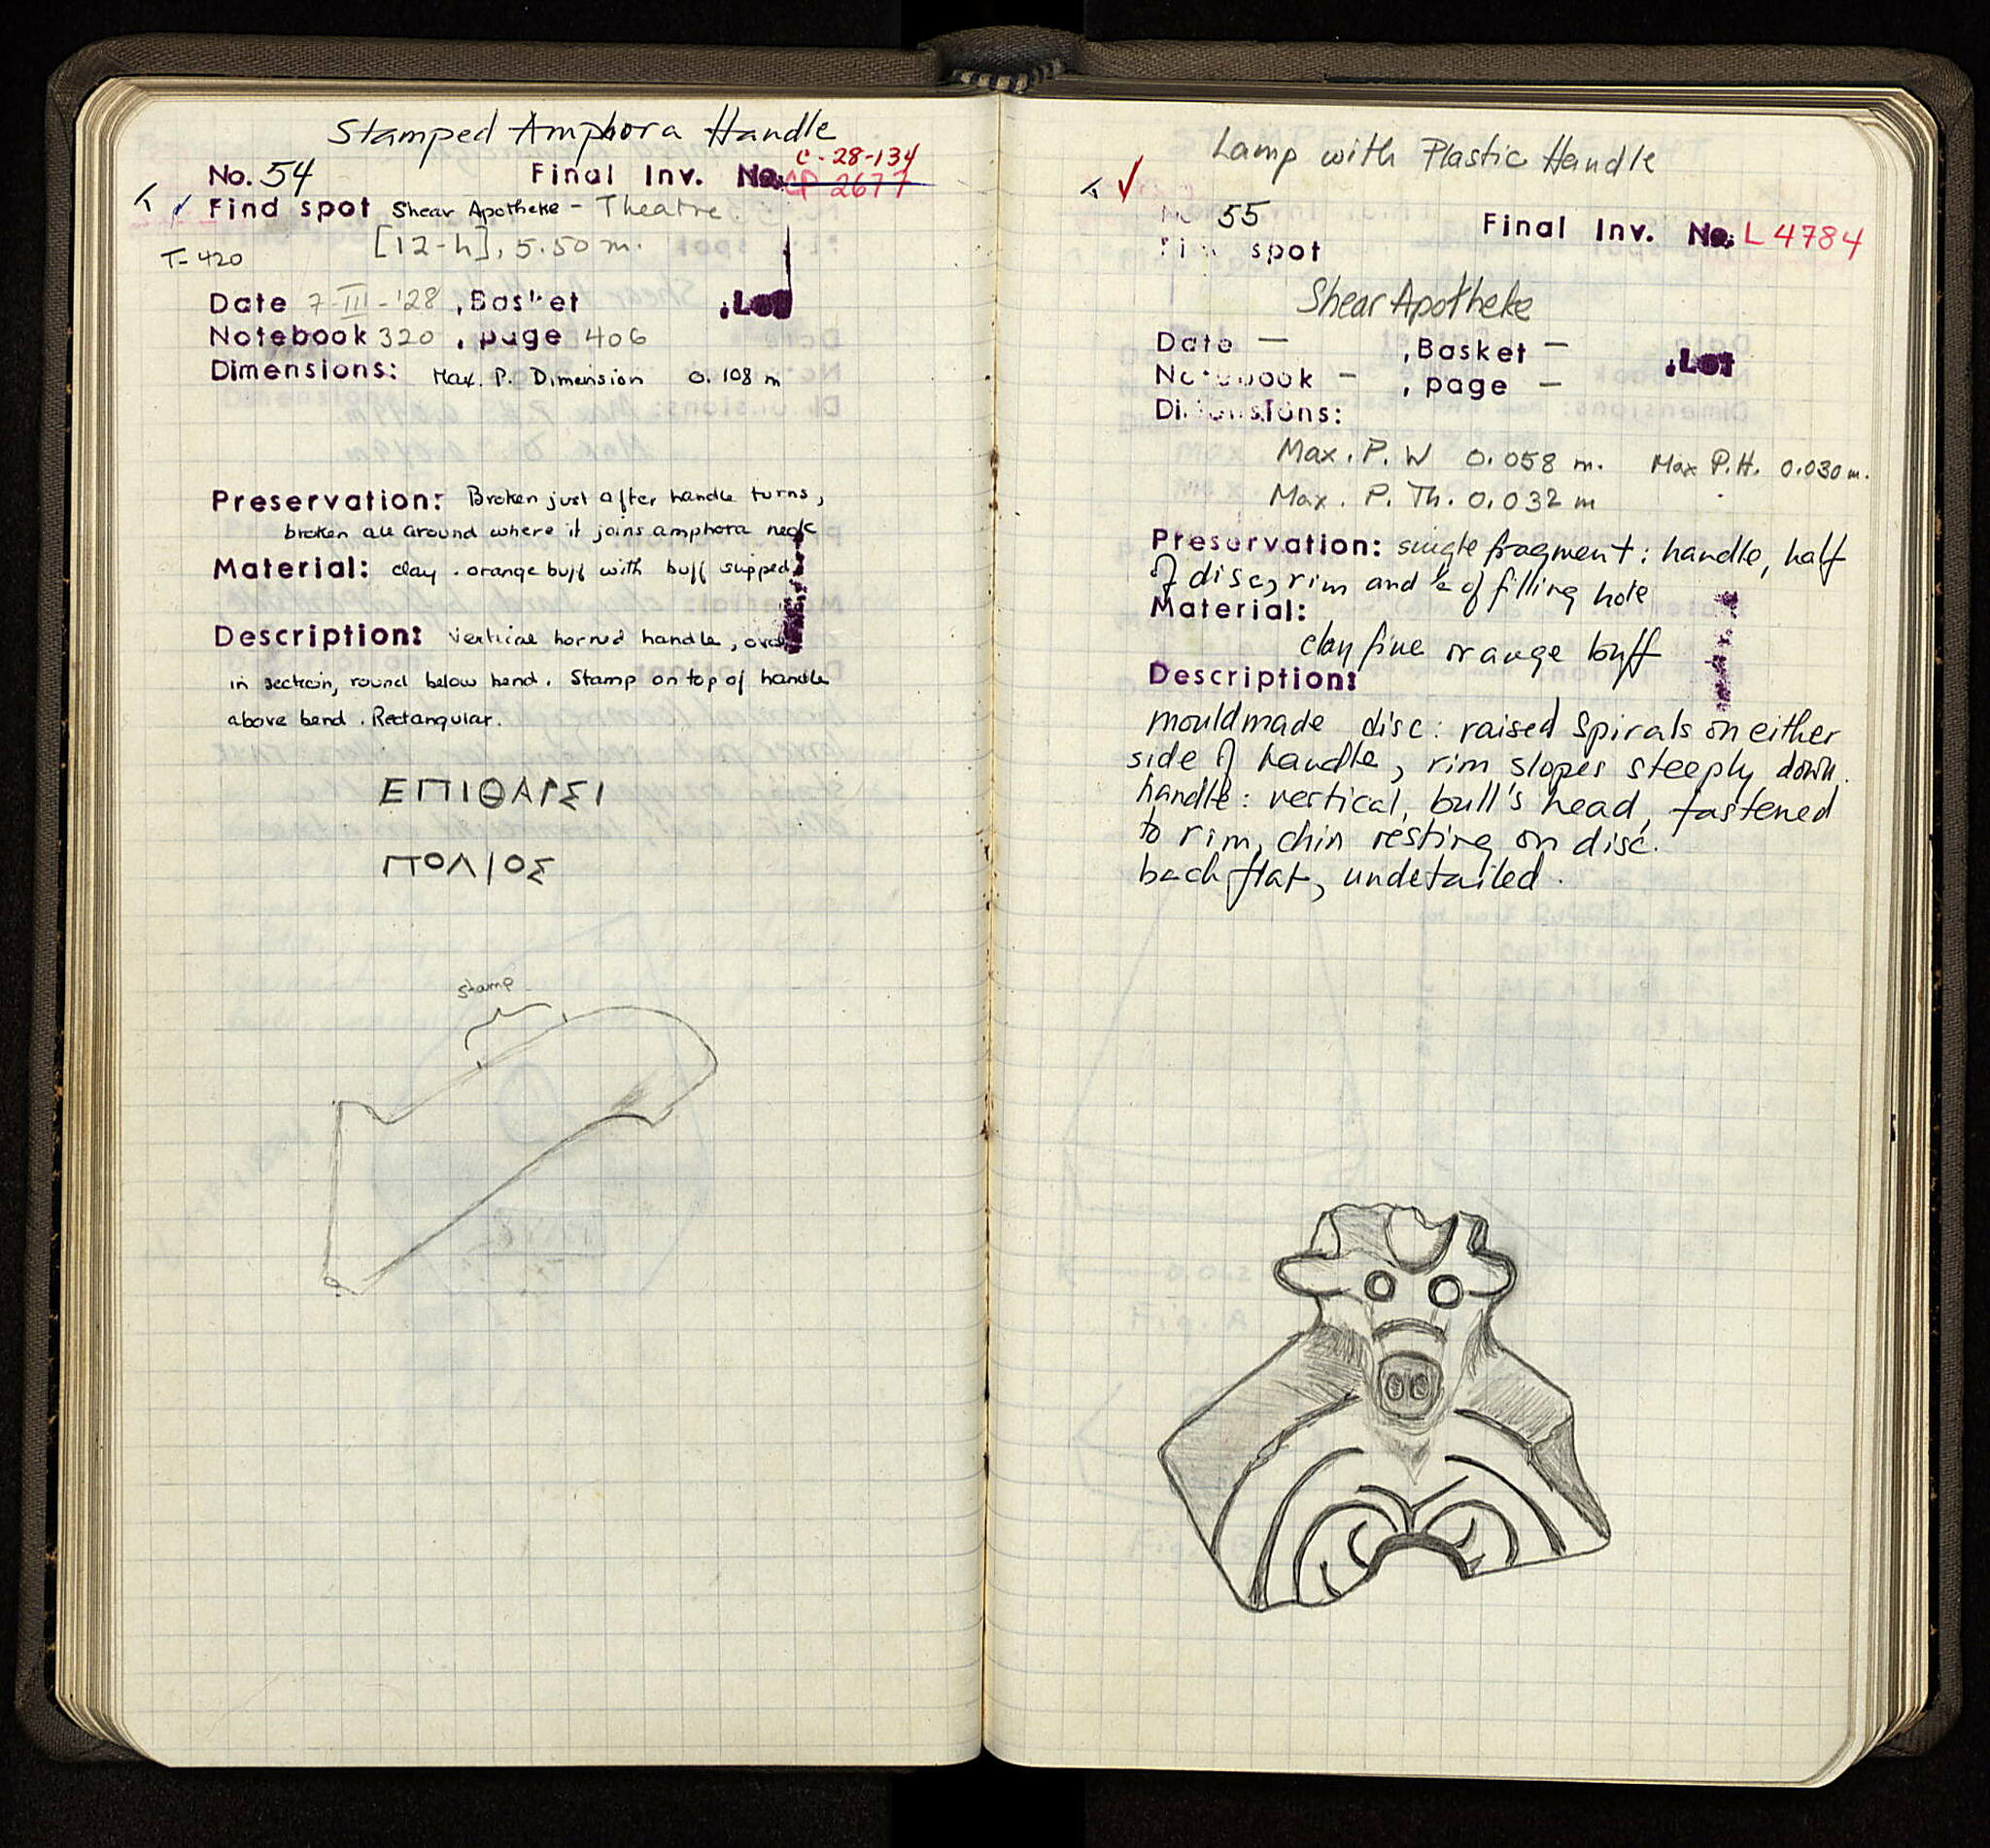 Stamped Amphora Handle
C-28-134
No. 54 Final Inv. No. CP 2677
Find spot Shear Apotheke - Theatre.
[12-h], 5.50 m.
T-420
Date 7-III-'28, Basket , Lot
Notebook 320, page 406
Dimensions: Max. P. Dimension 0.108 m
Preservation: Broken just after handle turns,
broken all around where it joins amphora neck
Material: clay. orange buff with buff slipped
Description: vertical horned handle, oval
in section, round below bend. Stamp on top of handle
above bend. Rectangular.
ΕΠΙΘΑΡΣΙ
ΠΟΛΙΟΣ
stamp
Lamp with Plastic Handle
No 55 Final Inv. No. L 4784
Find spot
Shear Apotheke
Date — , Basket — , Lot
Notebook - , page —
Dimensions:
Max. P. W 0.058 m. Max P.H. 0.030 m.
Max. P. Th. 0.032 m
Preservation: single fragment: handle, half
of disc, rim and ½ of filling hole
Material:
clay fine orange buff
Description:
mouldmade disc: raised spirals on either
side of handle, rim slopes steeply down.
handle: vertical, bull's head, fastened
to rim, chin resting on disc.
back flat, undetailed.